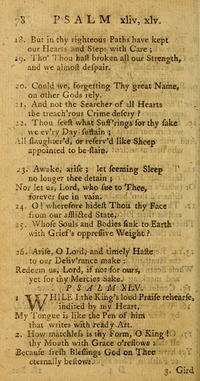 78 PSALM xliv, xlv.
18. But in thy righteous Paths have kept
our Hearts and Steps with Care ;
19. Tho' Thou hast broken all our Strength,
and we almost despair.
20. Could we, forgetting Thy great Name,
on other Gods rely.
21. And not the Searcher of all Hearts
the treach'rous Crime descry ?
22. Thou see'st what Suff'rings for thy sake
we ev'ry Day sustain ;
All slaughter'd, or reserv'd like Sheep
appointed to be slain.
23. Awake, arise ; let seeming Sleep
no longer thee detain ;
Nor let us, Lord, who sue to Thee,
forever sue in vain.
24. O! wherefore hidest Thou thy Face
from our afflicted State,
25. Whose Souls and Bodies sink to Earth
with Grief's oppressive Weight ?
26. Arise, O Lord, and timely Haste
to our Deliv'rance make :
Redeem us, Lord, if not for ours,
yet for thy Mercies Sake.
PSALM XLV.
1. WHILE I the King's loud Praise rehearse,
indited by my Heart,
My Tongue is like the Pen of him
that writes with ready Art.
2. How matchless is thy Form, O King !
thy Mouth with Grace o'reflows :
Because fresh Blessings God on Thee
eternally bestows.
3. Gird